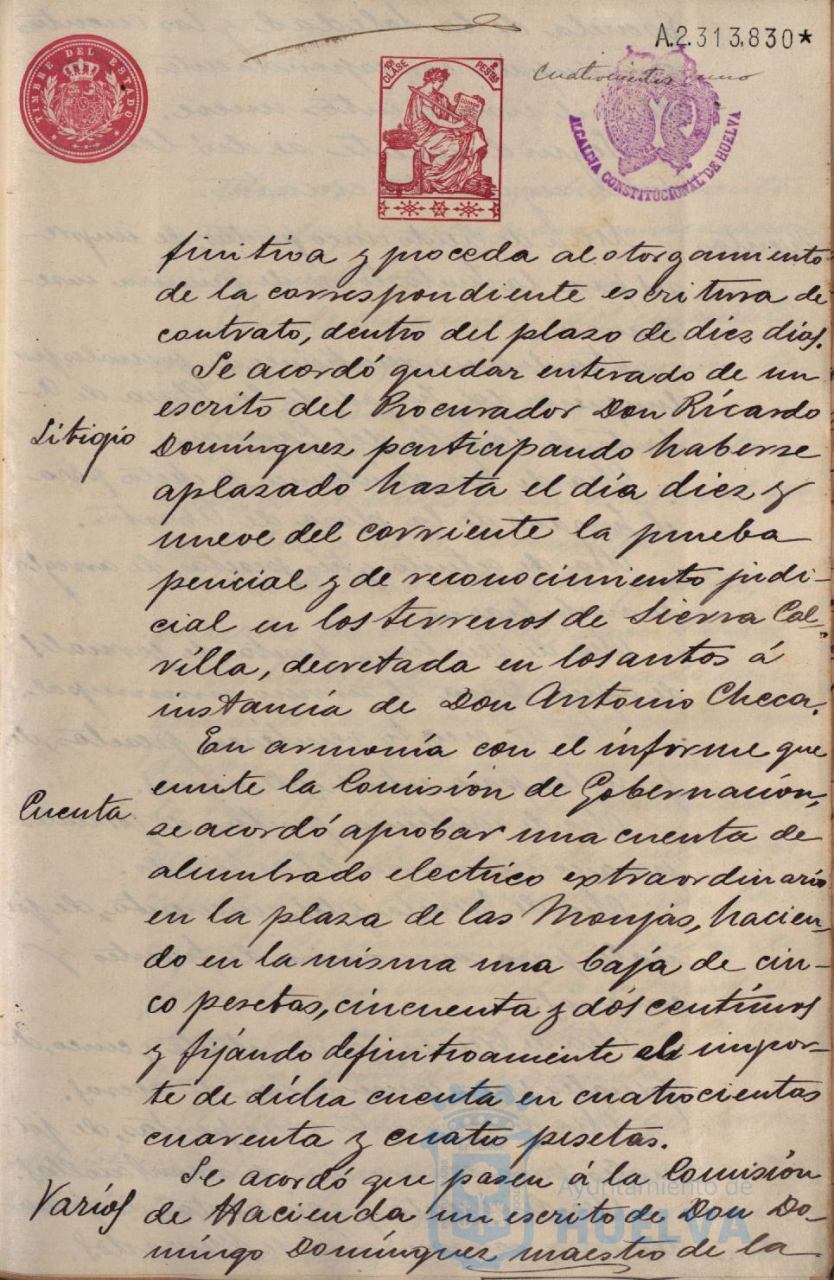 A.2.313.830*
TIMBRE DEL ESTADO
10ª CLASE 2 PESTAS
cuatrocientos uno
ALCALDIA CONSTITUCIONAL DE HUELVA
finitiva y proceda al otorgamiento
de la correspondiente escritura de
contrato, dentro del plazo de diez días.
Litigio
Se acordó quedar enterado de un
escrito del Procurador Don Ricardo
Domínguez participando haberse
aplasado hasta el día diez y
nueve del corriente la prueba
pericial y de reconocimiento judi-
cial en los terrenos de Sierra Cal-
villa, decretada en los autos á
instancia de Don Antonio Checa.
Cuenta
En armonía con el informe que
emite la Comisión de Gobernación,
se acordó aprobar una cuenta de
alumbrado electrico extraordinario
en la plaza de las Monjas, hacien-
do en la misma una baja de cin-
co pesetas, cincuenta y dós centimos
y fijando definitivamente el impor-
te de dicha cuenta en cuatrocientas
cuarenta y cuatro pesetas.
Varios
Se acordó que pasen á la Comisión
de Hacienda un escrito de Don Do-
mingo Domínguez maestro de la
Ayuntamiento de
HUELVA